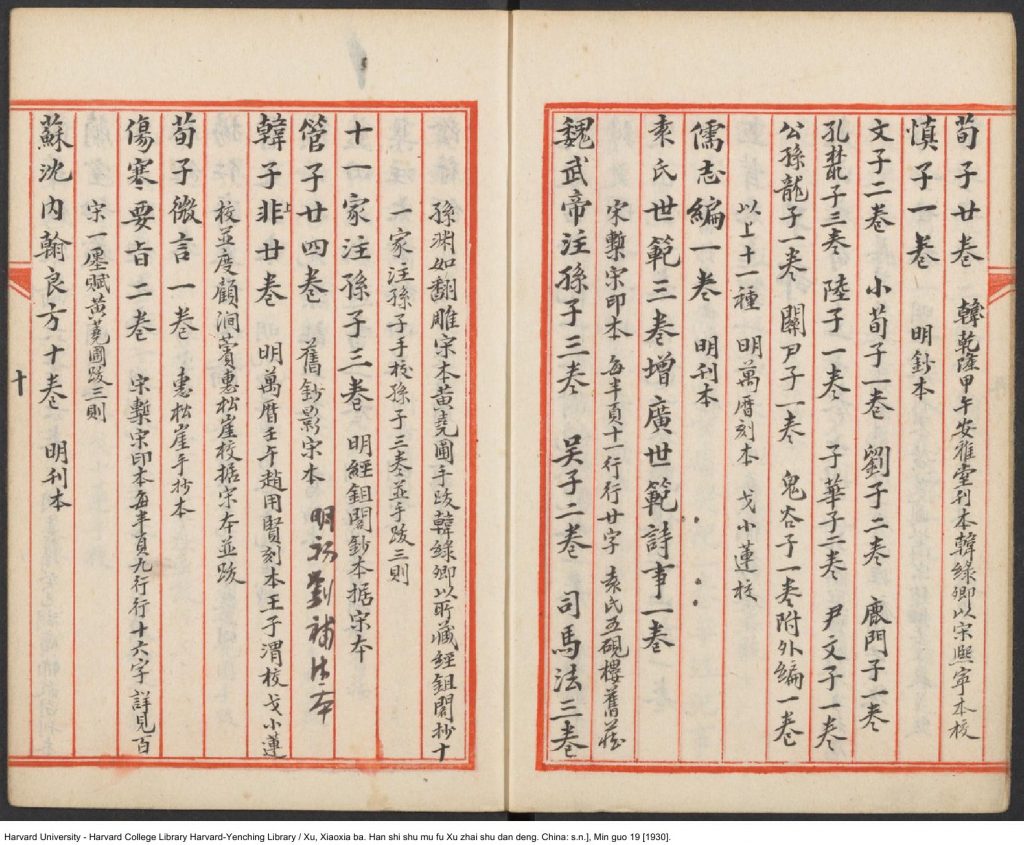 荀子廿卷　韓乾隆甲午安雅堂刊本韓綠卿以宋熙寧本校
慎子一卷　明鈔本
文子二卷　小荀子一卷　劉子二卷　鹿門子一卷
孔叢子三卷　陸子一卷　子華子二卷　尹文子一卷
公孫龍子一卷　關尹子一卷　鬼谷子一卷附外編一卷
以上十一種　明萬曆刻本　戈小蓮校
儒志編一卷　明刊本
袁氏世範三卷增廣世範詩事一卷
宋槧宋印本　每半頁十一行行廿字　袁氏五硯樓舊藏
魏武帝注孫子三卷　吴子二卷　司馬法三卷
孫淵如翻雕宋本黃蕘圃手跋韓綠卿以所藏經鉏閣抄十
一家注孫子手校孫子三卷並手跋三則
十一家注孫子三卷　明經鉏閣鈔本據宋本
管子廿四卷　舊鈔影宋本　明初劉補注本
韓子非廿卷　明萬曆壬午趙用賢刻本王子渭校戈小蓮
校並度顧澗薲惠松崖校據宋本並跋
荀子微言一卷　惠松崖手抄本
傷寒要旨二卷　宋槧宋印本每半頁九行行十六字　詳見百
宋一廛賦黃蕘圃跋三則
蘇沈內翰良方十卷　明刊本
十
Harvard University - Harvard College Library Harvard-Yenching Library / Xu, Xiaoxia ba. Han shi shu mu fu Xu zhai shu dan deng. China: s.n.], Min guo 19 [1930].